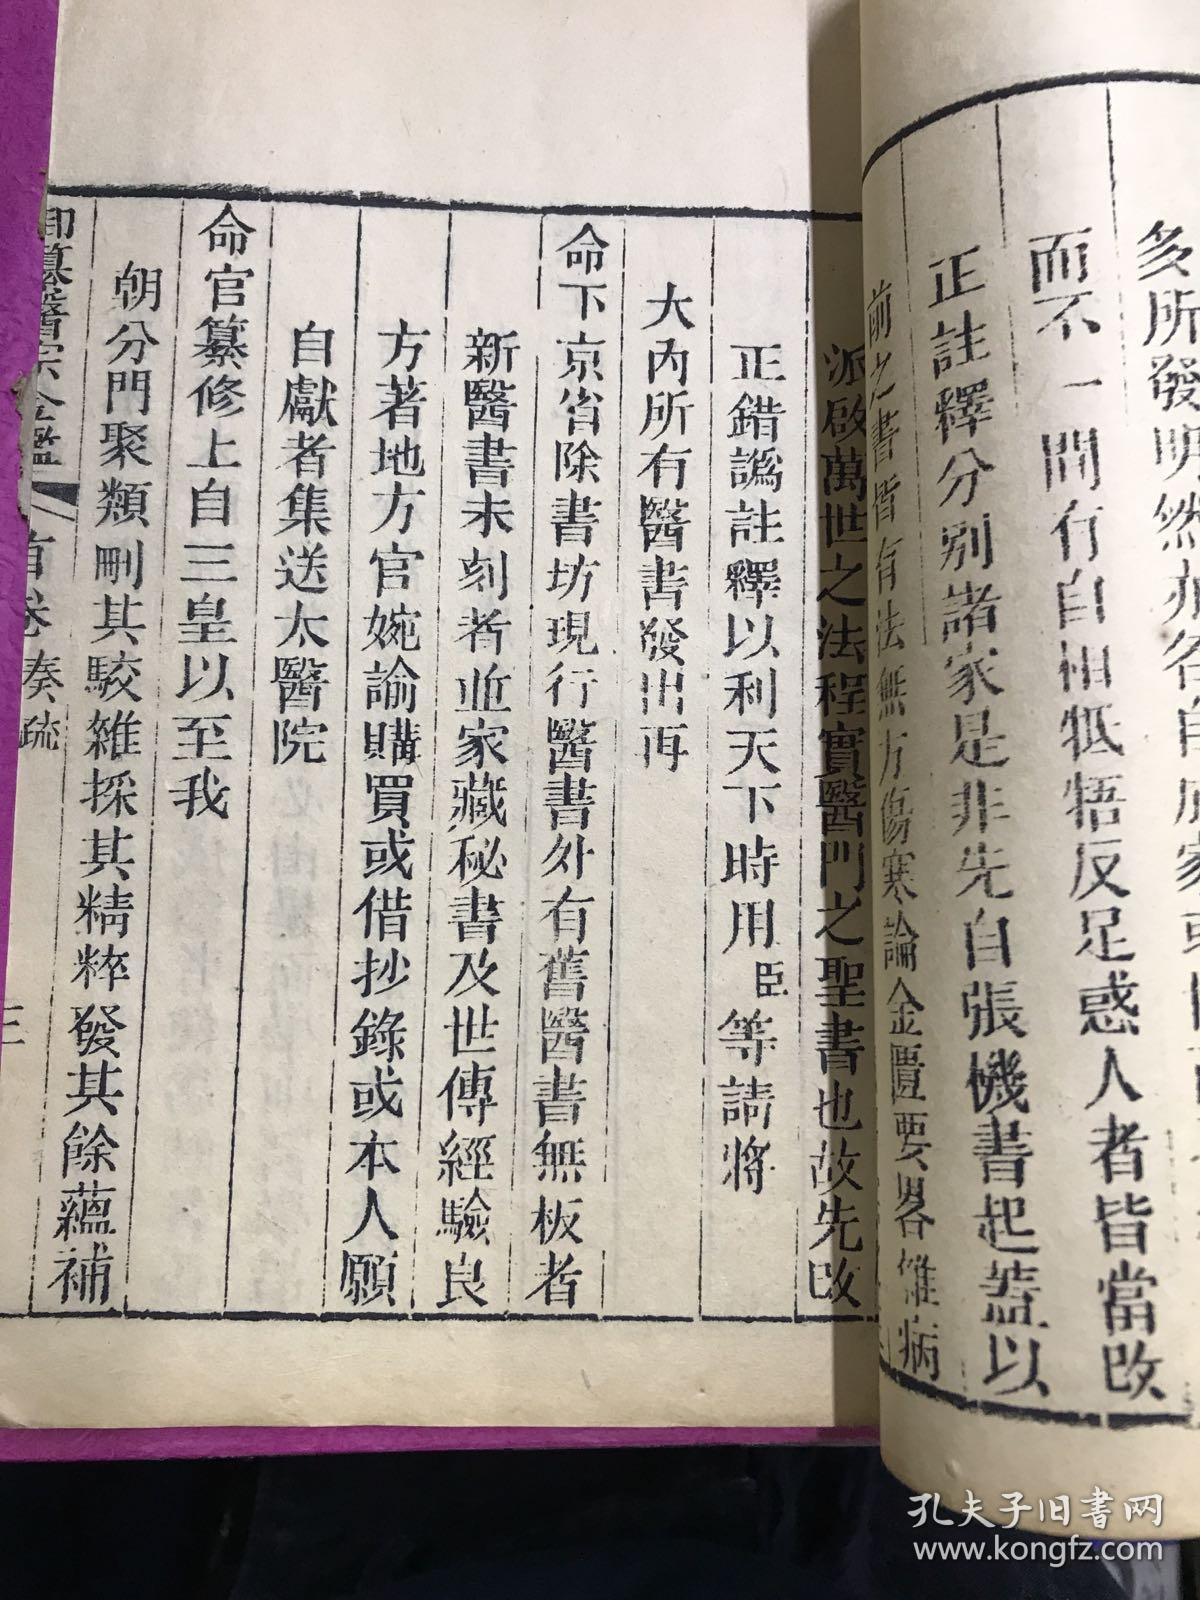 多所發明然亦各自成家或
而不一間有自相牴牾反足惑人者皆當改
正註釋分別諸家是非先自張機書起蓋以
前之書皆有法無方傷寒論金匱要畧雜病
派啟萬世之法程實醫門之聖書也故先改
正錯譌註釋以利天下時用臣等請將
大內所有醫書發出再
命下京省除書坊現行醫書外有舊醫書無板者
新醫書未刻者並家藏秘書及世傳經驗良
方著地方官婉諭購買或借抄錄或本人願
自獻者集送太醫院
命官纂修上自三皇以至我
朝分門聚類刪其駁雜採其精粹發其餘蘊補
御纂醫宗金鑑 首卷 奏疏 三
孔夫子旧书网
www.kongfz.com